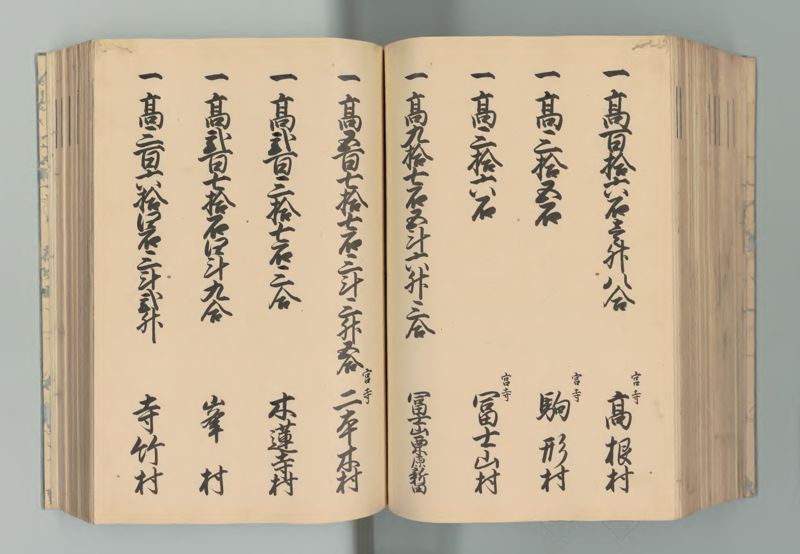 一 高百拾六石壱升八合 宮寺 高根村
一 高三拾五石 宮寺 駒形村
一 高三拾六石 宮寺 冨士山村
一 高九拾七石五斗六升三合 冨士山栗原新田
一 高五百七拾七石三斗三升五合 宮寺 二本木村
一 高弐百三拾七石三合 木蓮寺村
一 高弐百七拾石四斗九合 峯村
一 高三百六拾四石三斗弐升 寺竹村